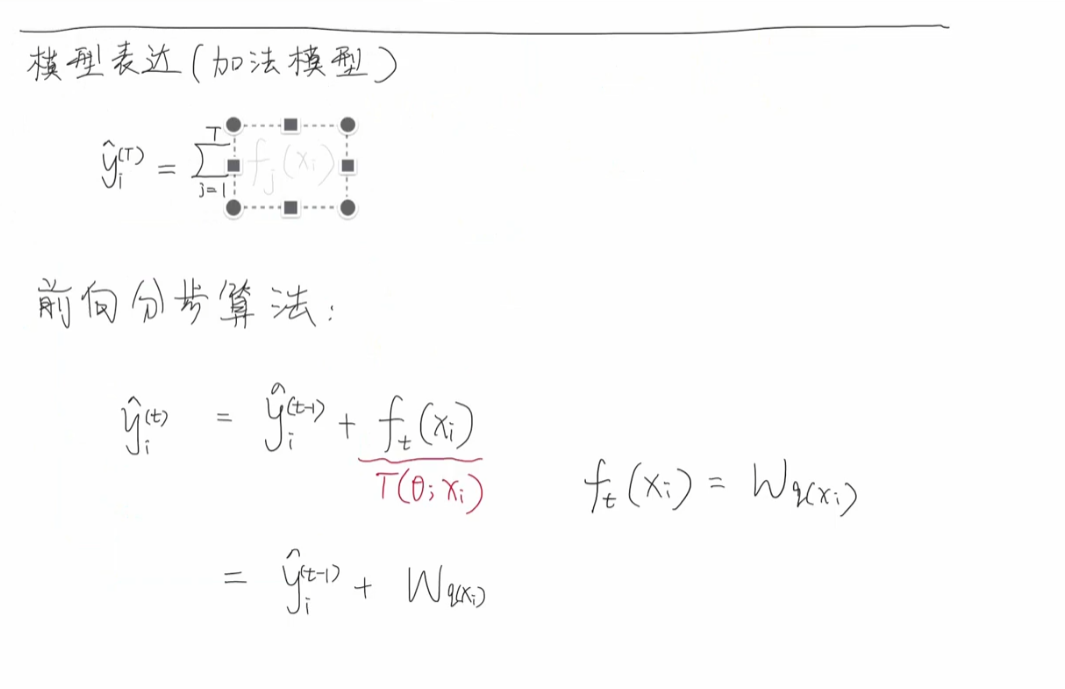 模型表达(加法模型)
ŷᵢ⁽ᵀ⁾ = ∑ⱼ₌₁ᵀ fⱼ(xᵢ)
前向分步算法:
ŷᵢ⁽ᵗ⁾ = ŷᵢ⁽ᵗ⁻¹⁾ + fₜ(xᵢ)
T(θ; xᵢ)
fₜ(xᵢ) = W_q(xᵢ)
= ŷᵢ⁽ᵗ⁻¹⁾ + W_q(xᵢ)